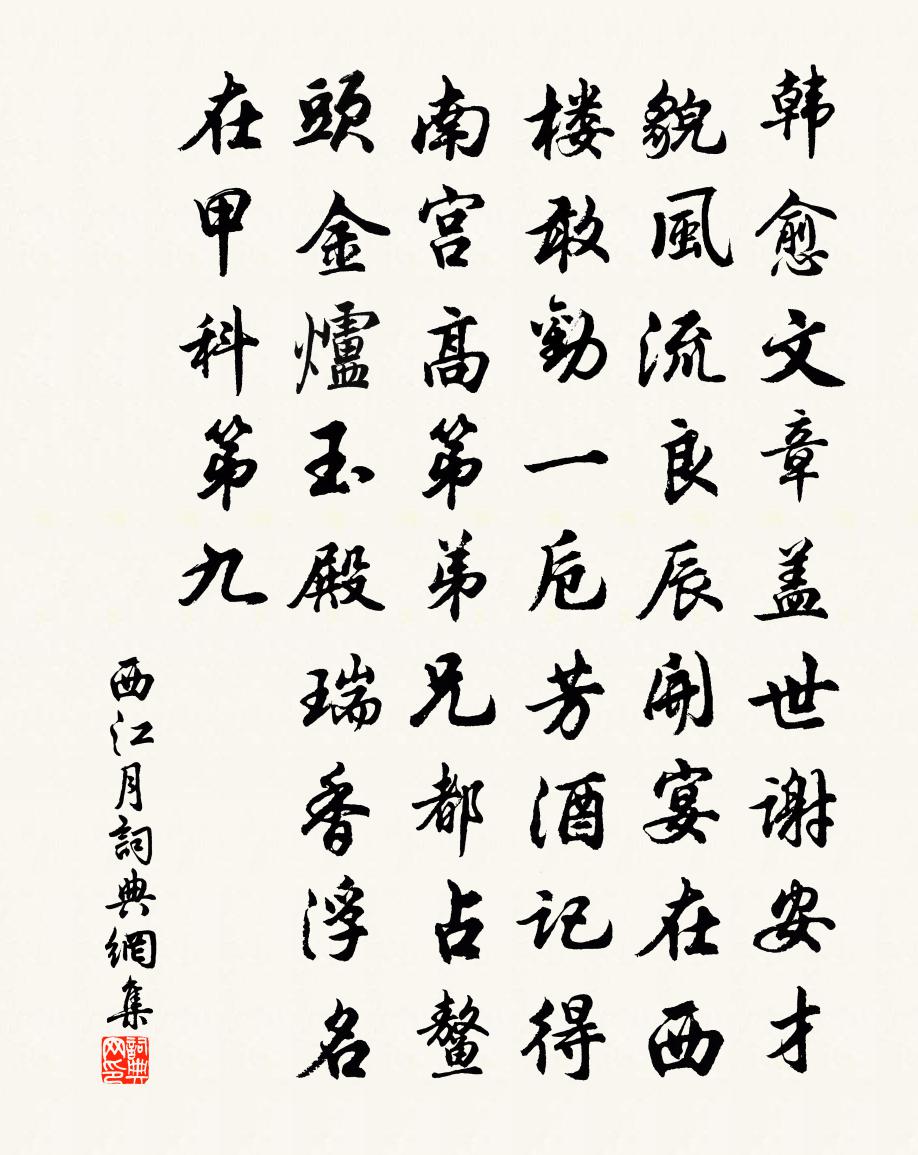 韩愈文章盖世谢安才
貌風流良辰開宴在西
楼敢勸一卮芳酒記得
南宫高第弟兄都占鳌
頭金爐玉殿瑞香浮名
在甲科第九
西江月詞典網集
詞典网印